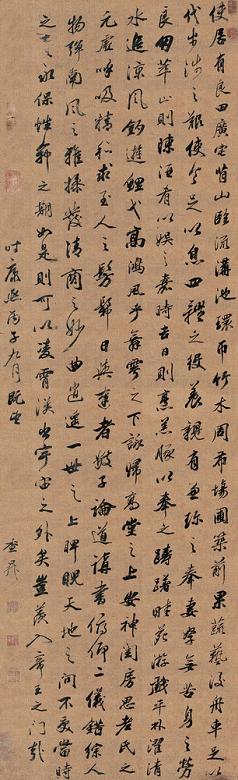 使居有良田廣宅背山臨流溝池環帀竹木周布場圃築前果蔬藝後舟車足以
代步涉之艱使令足以息四體之役養親有兼珍之奉妻孥無苦身之勞
良朋萃止則陳酒肴以娛之嘉時吉日則烹羔豚以奉之躊躇畦苑游戲平林濯清
水追涼風釣遊鯉弋高鴻風乎舞雩之下詠歸高堂之上安神閨房思老氏之
元虛呼吸精和求至人之髣髴日與達者數子論道講書俯仰二儀錯綜人
物彈南風之雅操發清商之妙曲逍遙一世之上睥睨天地之間不受當時
之責永保性命之期如是則可以凌霄漢出宇宙之外矣豈羨入帝王之門哉
時康熙丙子九月既望
查昇